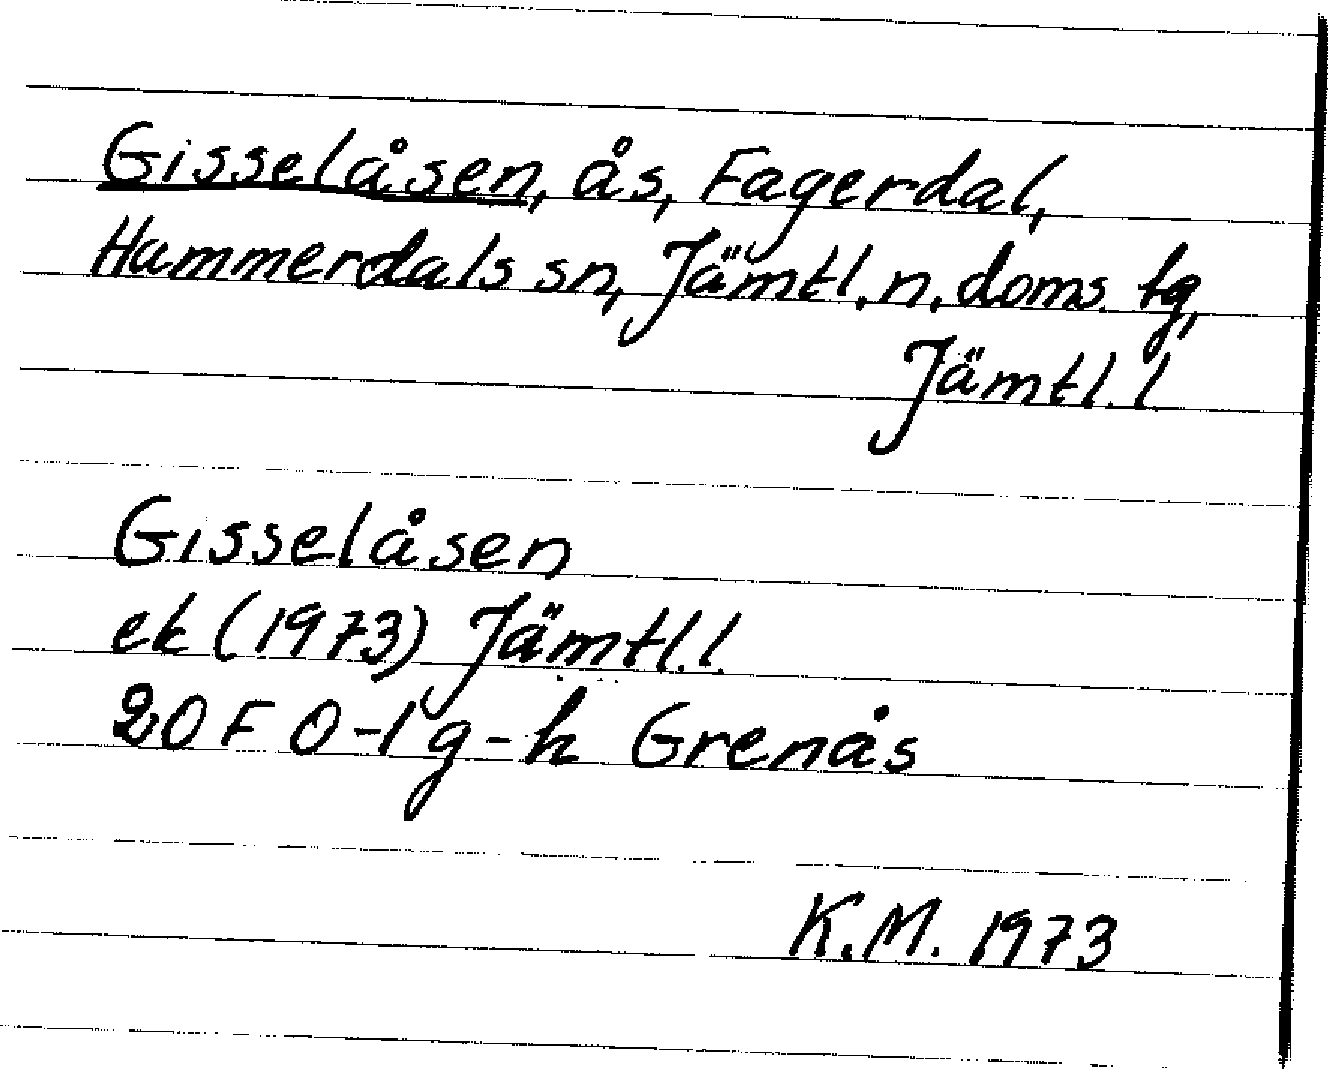 Gisselåsen, ås, Fagerdal,
Hammerdals sn, Jämtl. n. doms. tg,
Jämtl. l
Gisselåsen
ek (1973) Jämtl. l.
20 F 0-1 g-h Grenås
K.M. 1973